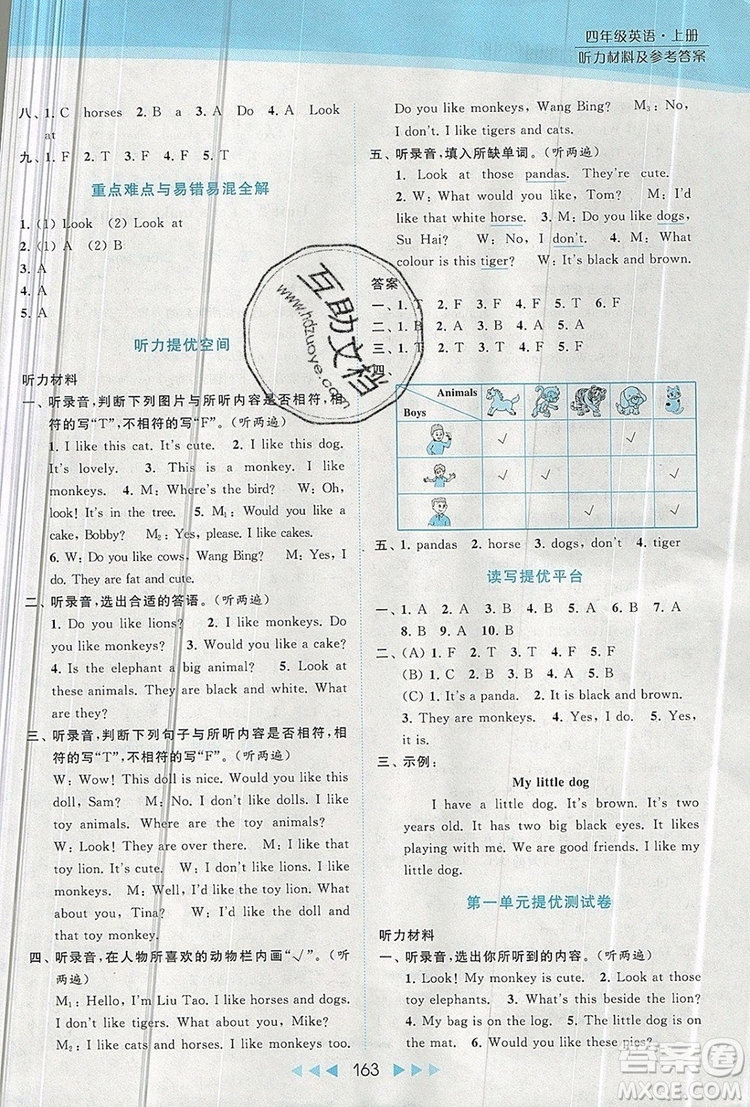 四年级英语·上册
听力材料及参考答案
八、1. C horses 2. B a 3. A Do 4. A Look
at
九、1. F 2. T 3. F 4. T 5. F
重点难点与易错易混全解
1. (1) Look (2) Look at
2. (1) A (2) B
3. A
4. A
5. A
听力提优空间
听力材料
一、听录音,判断下列图片与所听内容是否相符,相
符的写“T”,不相符的写“F”。(听两遍)
1. I like this cat. It's cute. 2. I like this dog.
It's lovely. 3. This is a monkey. I like
monkeys. 4. M: Where's the bird? W: Oh,
look! It's in the tree. 5. M₁: Would you like a
cake, Bobby? M₂: Yes, please. I like cakes.
6. W: Do you like cows, Wang Bing? M: Yes, I
do. They are fat and cute.
二、听录音,选出合适的答语。(听两遍)
1. Do you like lions? 2. Look! Do you like
these monkeys? 3. Would you like a cake?
4. Is the elephant a big animal? 5. Look at
these animals. They're black and white. What
are they?
三、听录音,判断下列句子与所听内容是否相符,相
符的写“T”,不相符的写“F”。(听两遍)
W: Wow! This doll is nice. Would you like this
doll, Sam? M: No, I don't like dolls. I like
toy animals. Where are the toy animals?
W: Look! They are over there. M: I like that
toy lion. It's cute. W: Would you like the toy
lion? M: Well, I'd like this toy monkey. What
about you, Tina? W: I'd like the doll and that
toy monkey.
四、听录音,在人物所喜欢的动物栏内画“√”。(听
两遍)
M₁: Hello, I'm Liu Tao. I like horses and dogs.
I don't like tigers. What about you, Mike?
M₂: I like cats and horses. I like monkeys too.
Do you like monkeys, Wang Bing? M₃: No, I
don't. I like tigers and cats.
五、听录音,填入所缺单词。(听两遍)
1. Look at those pandas. They're cute.
2. W: What would you like, Tom? M: I'd
like that white horse. 3. M: Do you like dogs,
Su Hai? W: No, I don't. 4. M: What
colour is this tiger? W: It's black and brown.
答案
一、1. T 2. F 3. F 4. T 5. T 6. F
二、1. A 2. B 3. B 4. A 5. B
三、1. T 2. F 3. T 4. F 5. F
四、
Animals
Boys
√ √
√ √ √
√ √
五、1. pandas 2. horse 3. dogs, don't 4. tiger
读写提优平台
一、1. A 2. B 3. A 4. B 5. A 6. A 7. A
8. B 9. A 10. B
二、(A) 1. T 2. F 3. F 4. F 5. T
(B) 1. C 2. B 3. A
(C) 1. It's a panda. 2. It is black and brown.
3. They are monkeys. 4. No, it isn't. 5. Yes,
it is.
三、示例:
My little dog
I have a little dog. It's brown. It's two
years old. It has two big black eyes. It likes
playing with me. We are good friends. I like my
little dog.
第一单元提优测试卷
听力材料
一、听录音,选出你所听到的内容。(听两遍)
1. Look! My monkey is cute. 2. Look at those
toy elephants. 3. What's this beside the lion?
4. My bag is on the log. 5. The toy cat is on
the mat. 6. Would you like these pies?
163
互助文档
www.hdzuoye.com
答案圈
MXQE.COM